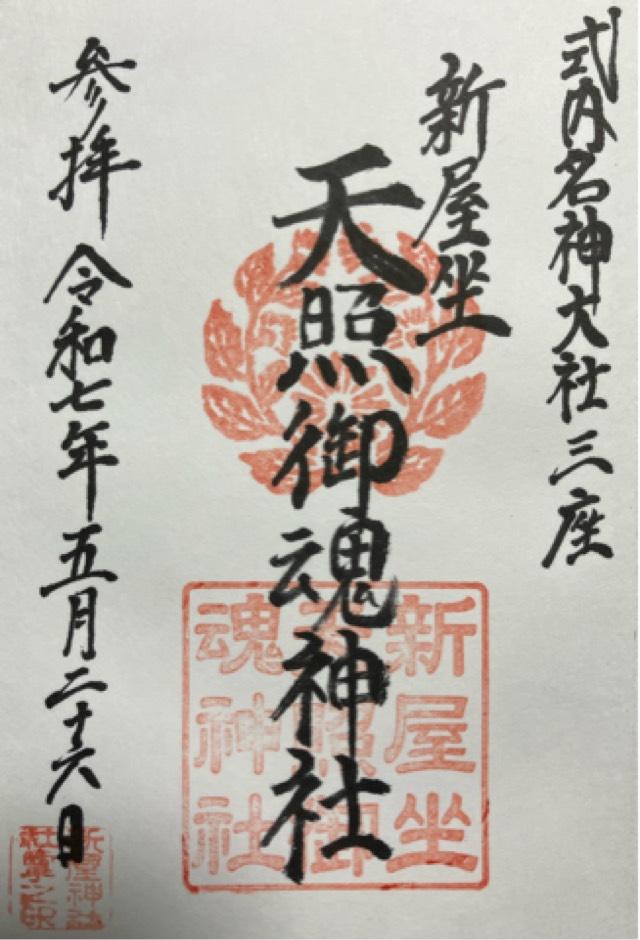 式内名神大社三座
新屋坐
天照御魂神社
参拝 令和七年五月二十六日
新屋坐
天照御
魂神社